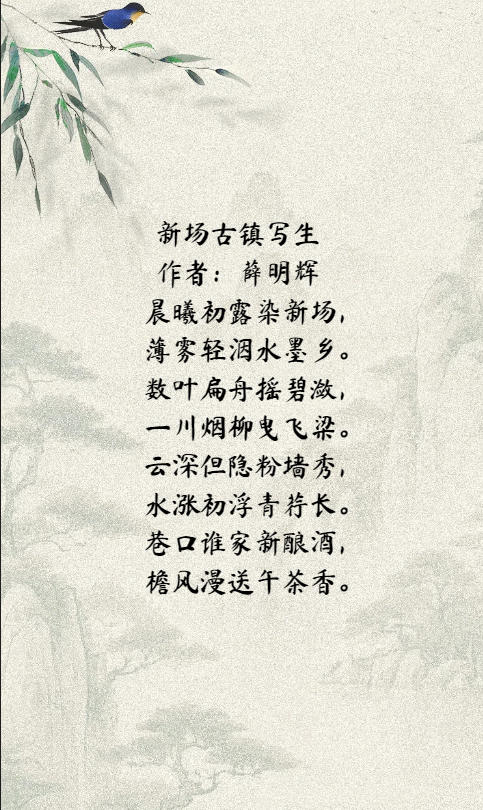 新场古镇写生
作者：薛明辉
晨曦初露染新场，
薄雾轻洇水墨乡。
数叶扁舟摇碧潋，
一川烟柳曳飞梁。
云深但隐粉墙秀，
水涨初浮青荇长。
巷口谁家新酿酒，
檐风漫送午茶香。